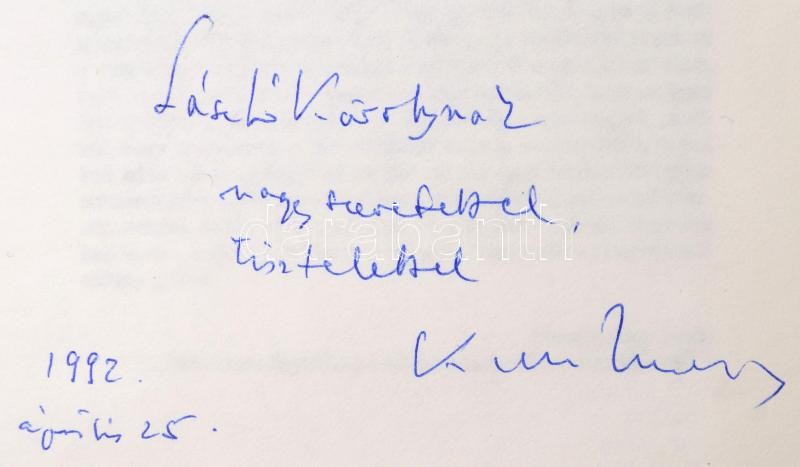 László Károlynak
nagy szeretettel,
tisztelettel
1992.
április 25.
darabanth